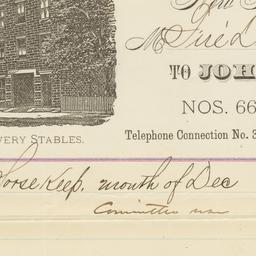 New
M Fire D
TO JOH
NOS. 66
VERY STABLES.
Telephone Connection No. 3
Horse Keep. month of Dec
Committee